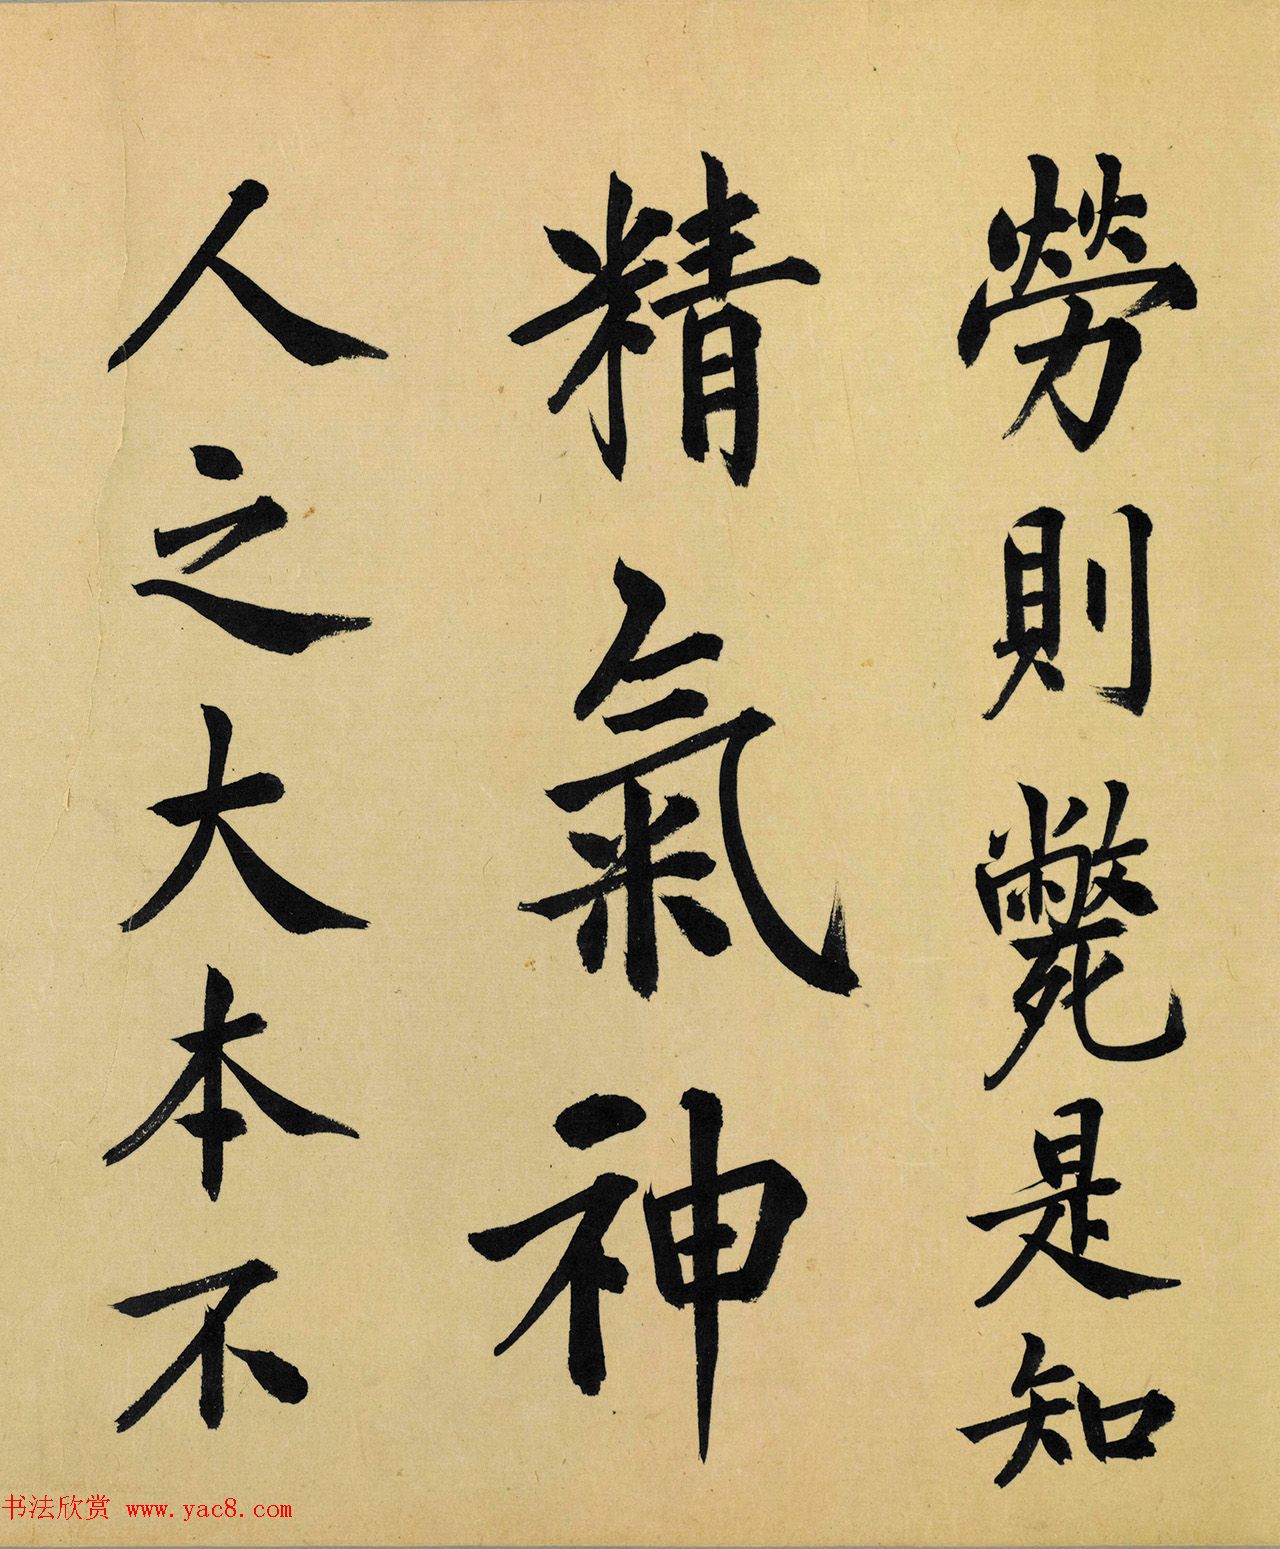 勞則斃是知
精氣神
人之大本不
书法欣赏 www.yac8.com